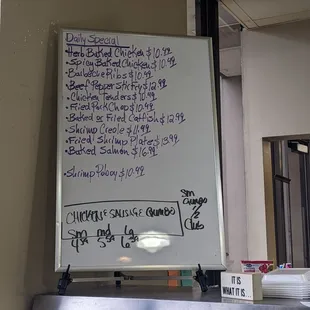 Daily Special
Herb Baked Chicken $10.99
Spicy Baked Chicken $10.99
Barbecue Ribs $10.99
Beef Pepper Stir Fry $12.99
Chicken Tenders $10.99
Fried Pork Chop $10.99
Baked or Fried Catfish $12.99
Shrimp Creole $11.99
Fried Shrimp Plate $13.99
Baked Salmon $16.99
Shrimp Poboy $10.99
CHICKEN & SAUSAGE GUMBO
Sm md La
Sm
Gumbo
1/2
Club
IT IS
WHAT IT IS...